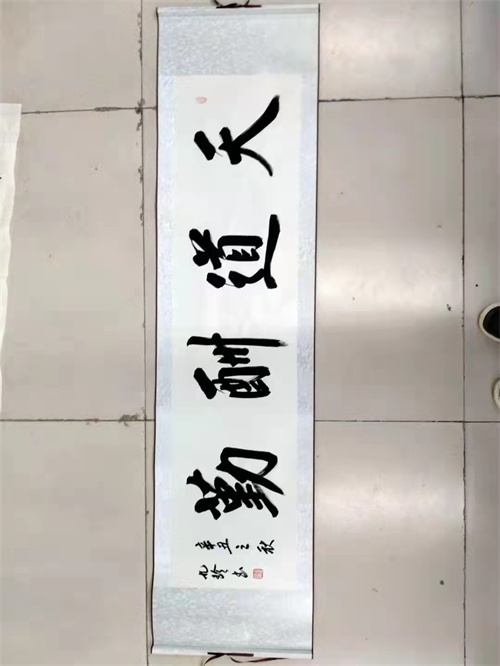 天道酬勤
辛丑之秋
书